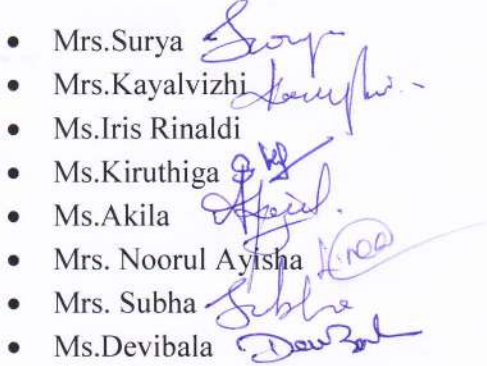 • Mrs.Surya Surya
• Mrs.Kayalvizhi
• Ms.Iris Rinaldi
• Ms.Kiruthiga
• Ms.Akila
• Mrs. Noorul Ayisha
• Mrs. Subha Subha
• Ms.Devibala